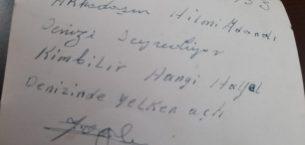 Arkadaşım Hilmi Adandı
Denizi Seyrediyor
Kimbilir Hangi Hayal
Denizinde yelken açtı